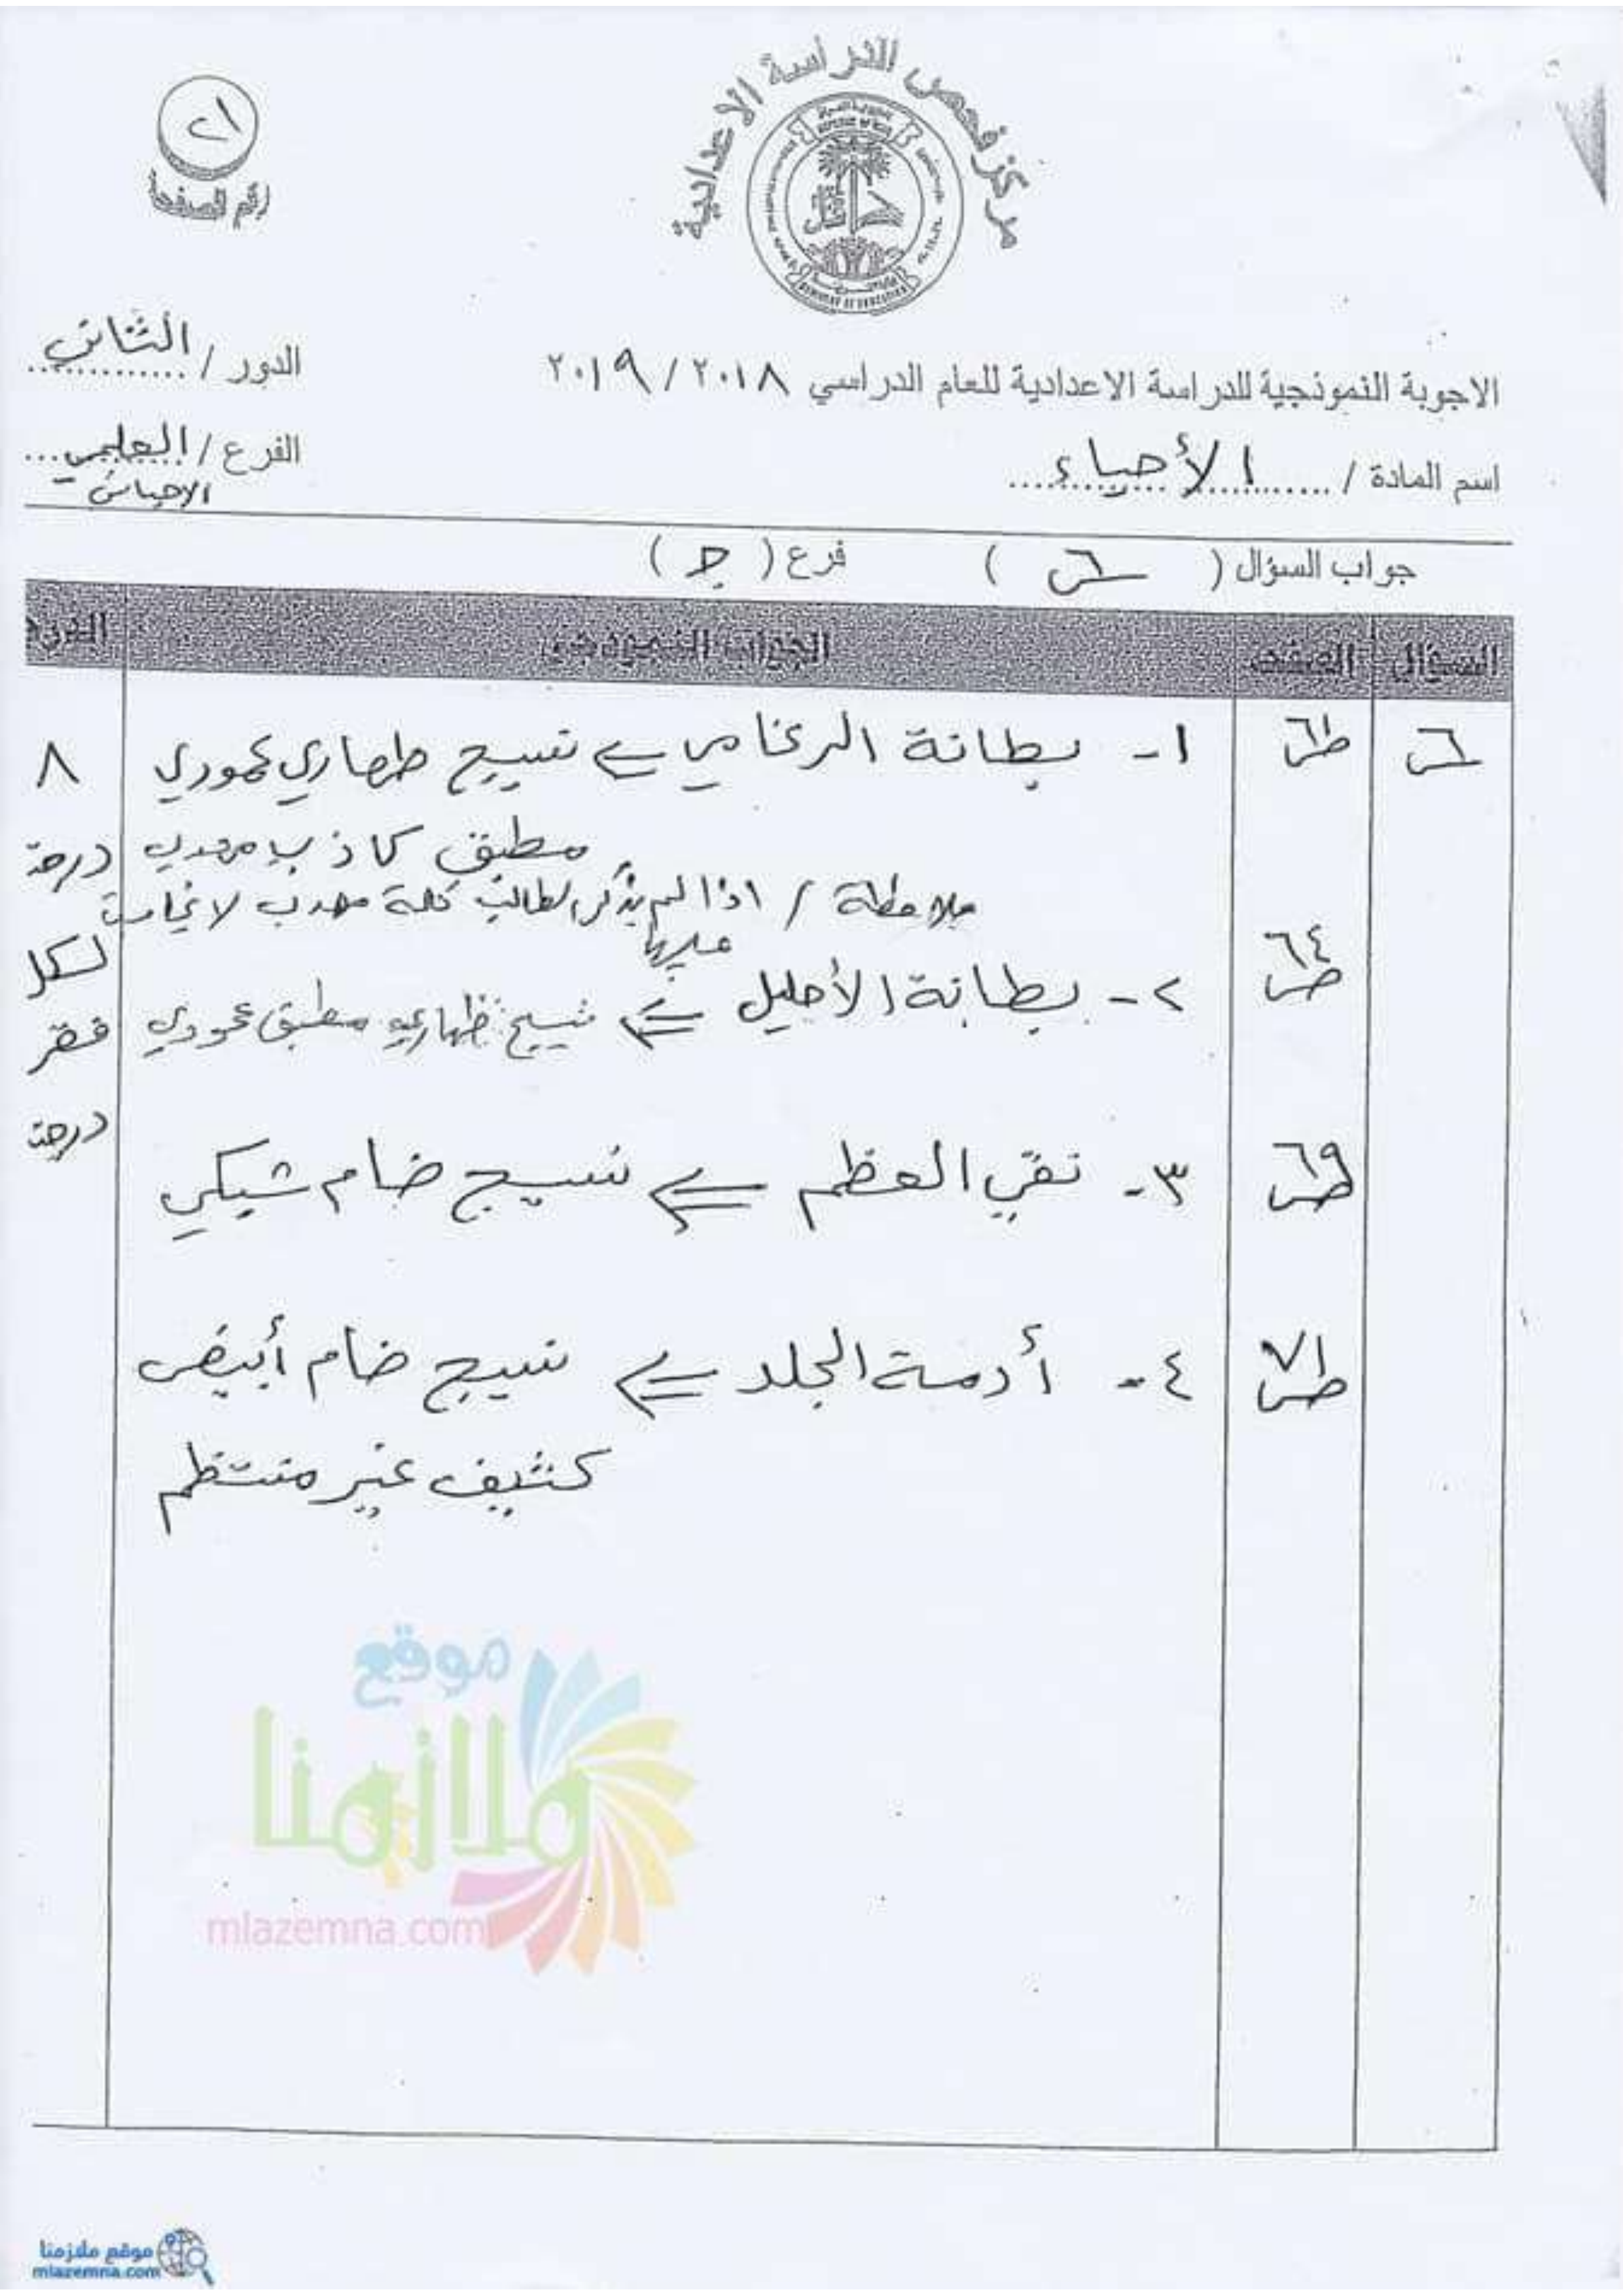 مركز فحص الدراسة الاعدادية
٢١
رقم الصفحة
الاجوبة النموذجية للدراسة الاعدادية للعام الدراسي ٢٠١٨ / ٢٠١٩
الدور / الثاني
اسم المادة / الأحياء
الفرع / العلمي
الاحيائي
جواب السؤال ( س٦ ) فرع ( ج )
السؤال الصفحة الجواب النموذجي الدرجة
س٦ ص٦١ ١- بطانة الرغامي ⇐ نسيج ظهاري عمودي ٨
مطبق كاذب مهدب درجة
ملاحظة / اذا لم يذكر الطالب كلمة مهدب لا يحاسب
عليها
لكل
ص٦٤ ٢- بطانة الأحليل ⇐ نسيج ظهاري مطبق عمودي
درجة
ص٦٩ ٣- نقي العظم ⇐ نسيج ضام شبكي
ص٧١ ٤- أدمة الجلد ⇐ نسيج ضام أبيض
كثيف غير منتظم
موقع
ملازمنا
mlazemna.com
موقع ملازمنا
mlazemna.com